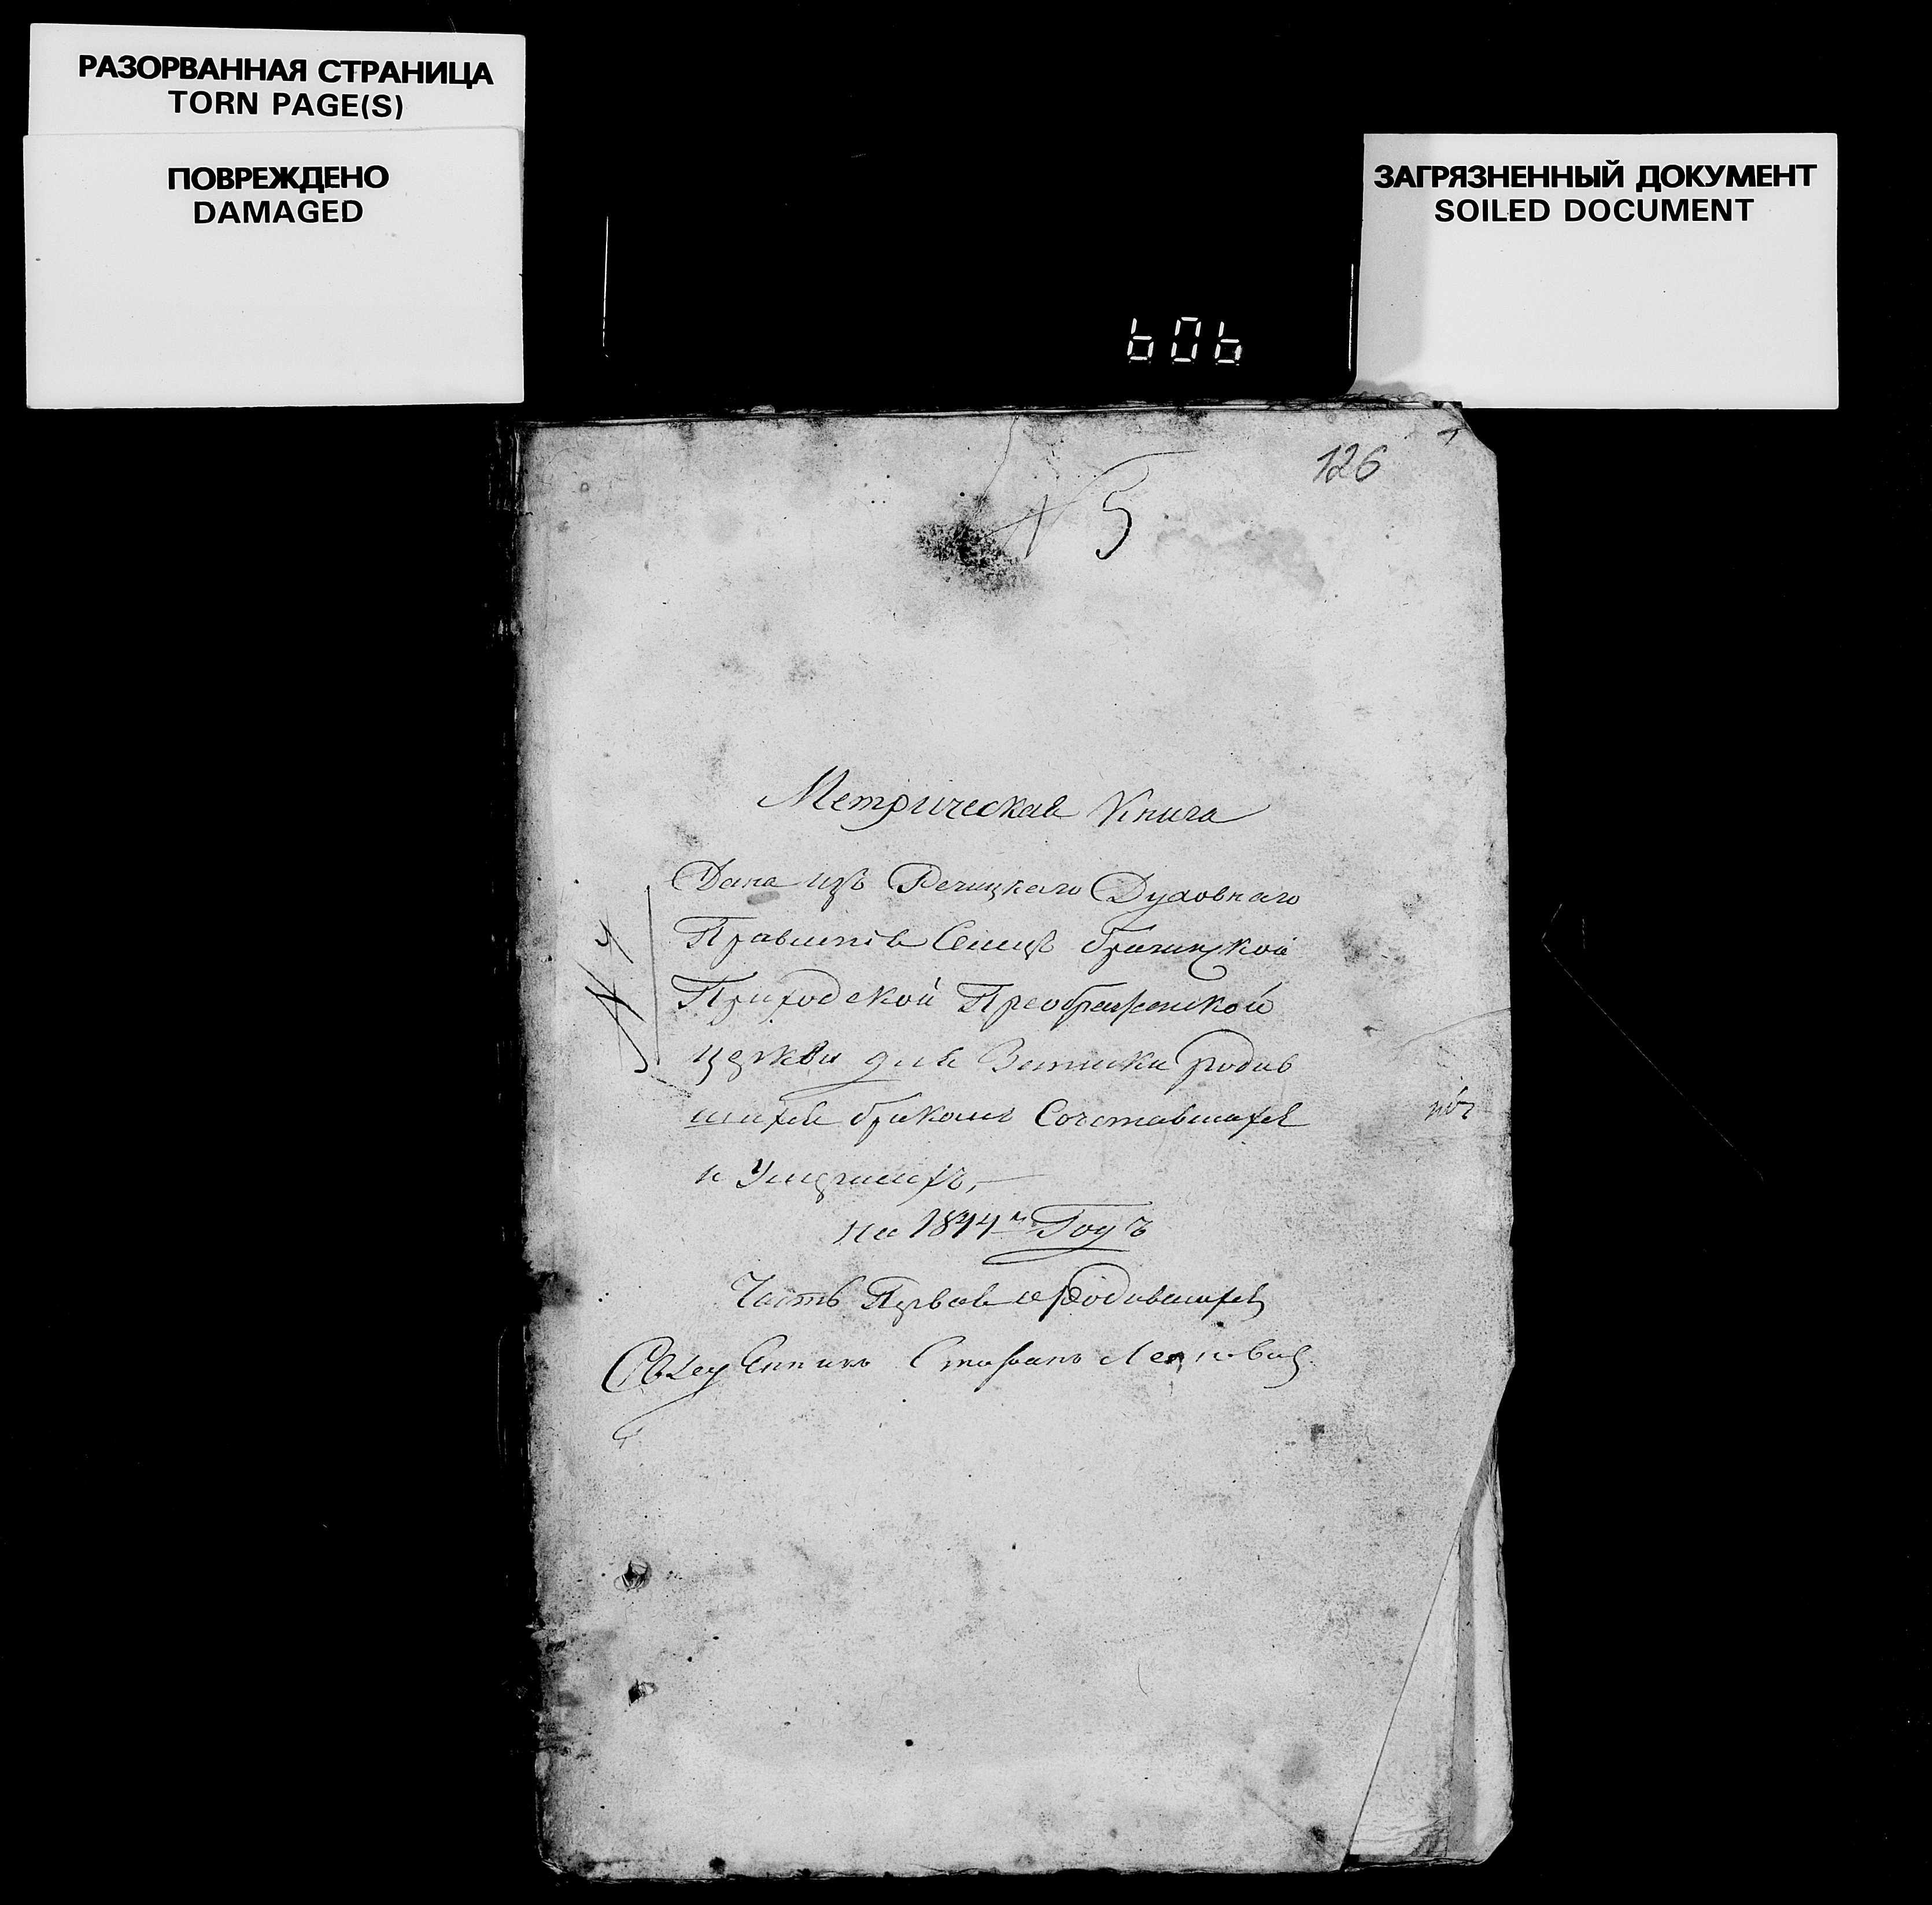 РАЗОРВАННАЯ СТРАНИЦА
TORN PAGE(S)
ПОВРЕЖДЕНО
DAMAGED
ЗАГРЯЗНЕННЫЙ ДОКУМЕНТ
SOILED DOCUMENT
606
126
№ 5
Метрическая Книга
Дана изъ Речицкаго Духовнаго
Правленія Брагинской
Приходской Преображенской
Церкви для Записки родив
шихся бракомъ Сочетавшихся
и Умершихъ,
на 1844й Годъ
Часть Первая о Родившихся
Священникъ Стефанъ